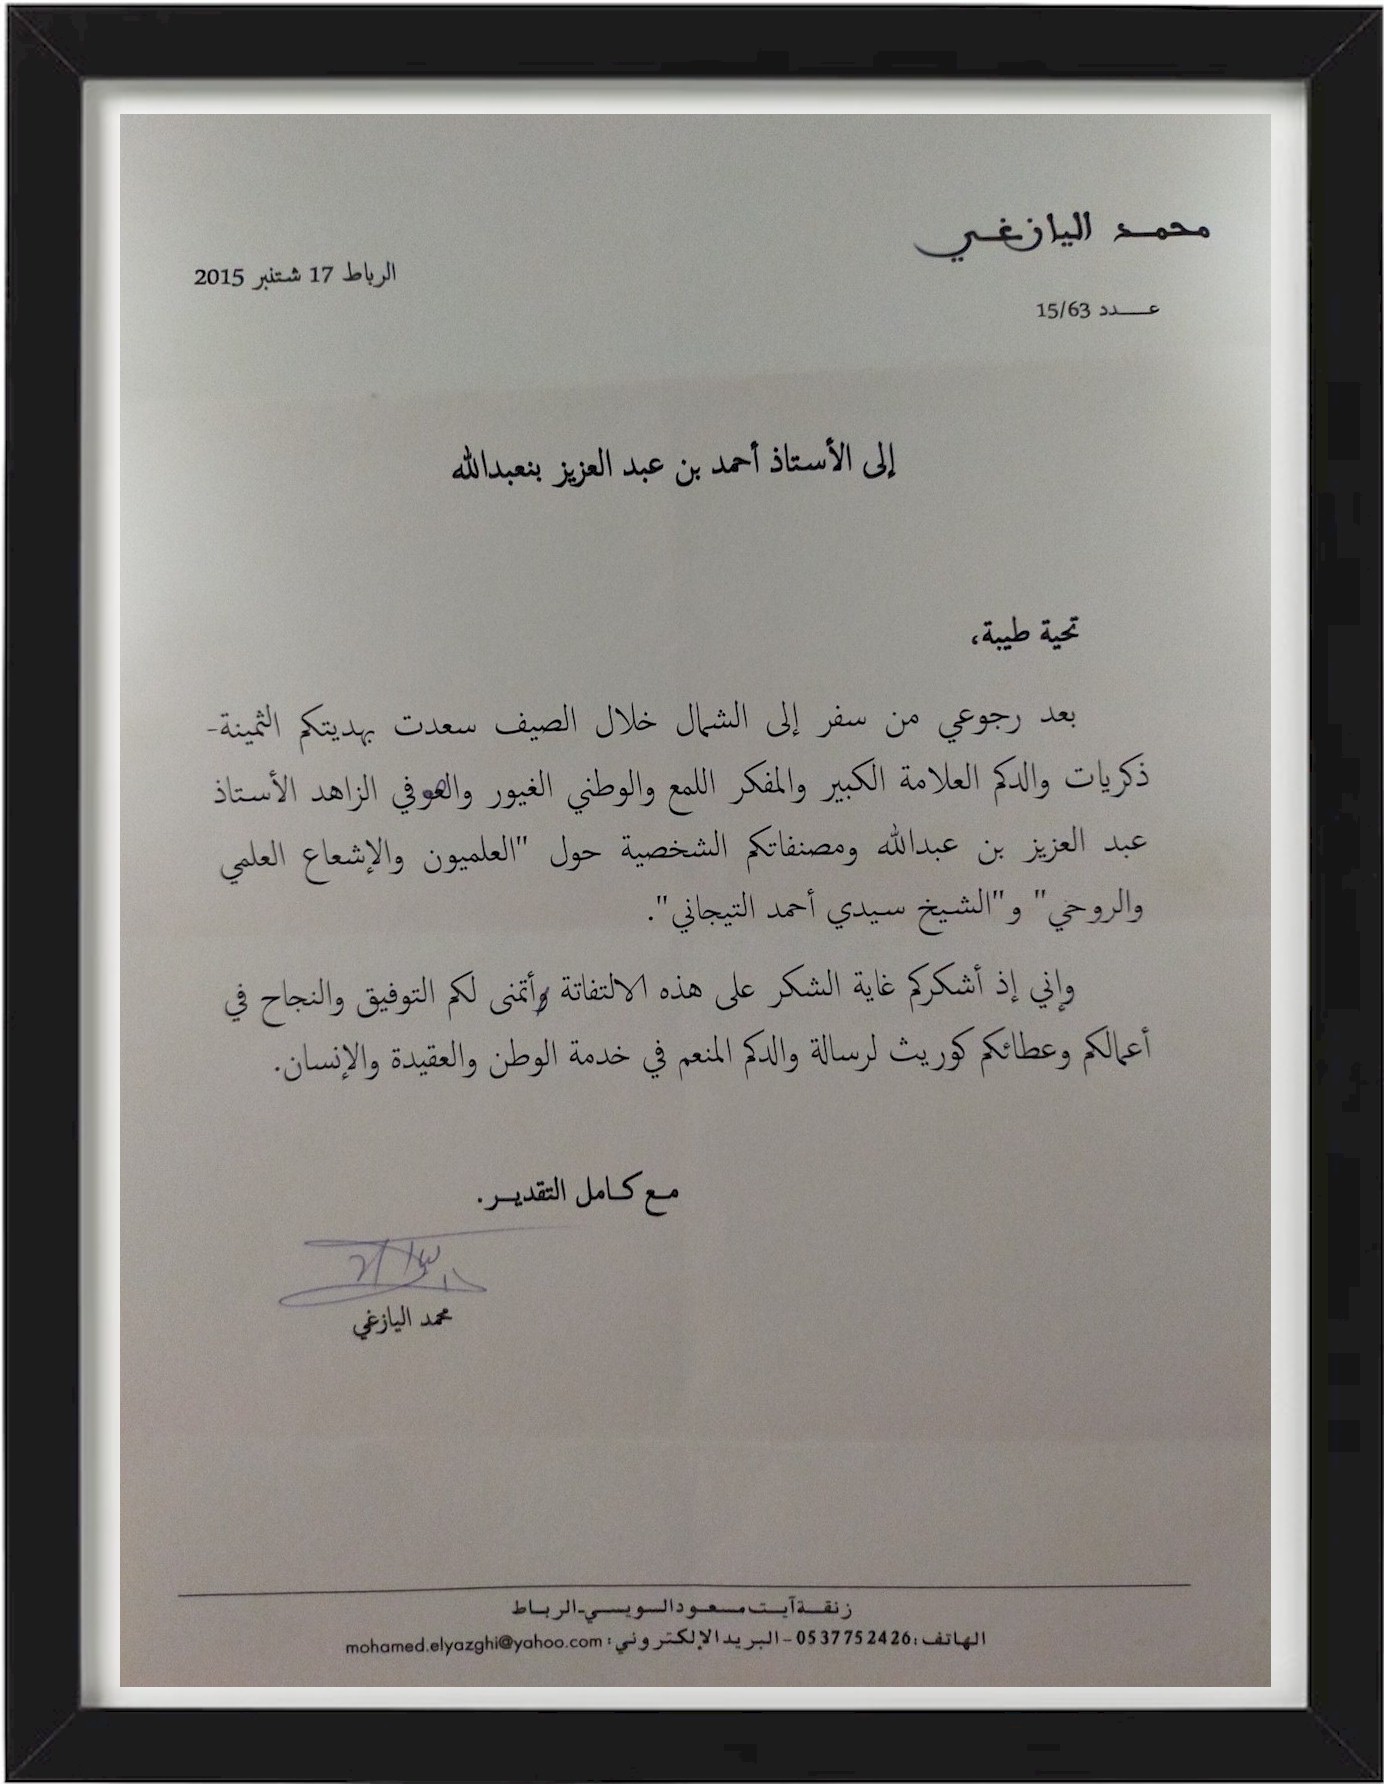 محمد اليازغي
الرباط 17 شتنبر 2015
عدد 15/63
إلى الأستاذ أحمد بن عبد العزيز بنعبدالله
تحية طيبة،
بعد رجوعي من سفر إلى الشمال خلال الصيف سعدت بهديتكم الثمينة-
ذكريات والدكم العلامة الكبير والمفكر اللمع والوطني الغيور والصوفي الزاهد الأستاذ
عبد العزيز بن عبدالله ومصنفاتكم الشخصية حول "العلميون والإشعاع العلمي
والروحي" و"الشيخ سيدي أحمد التيجاني".
وإني إذ أشكركم غاية الشكر على هذه الالتفاتة وأتمنى لكم التوفيق والنجاح في
أعمالكم وعطائكم كوريث لرسالة والدكم المنعم في خدمة الوطن والعقيدة والإنسان.
مع كامل التقدير.
محمد اليازغي
زنقة آيت مسعود السويسي-الرباط
الهاتف: 0537752426 - البريد الإلكتروني: mohamed.elyazghi@yahoo.com